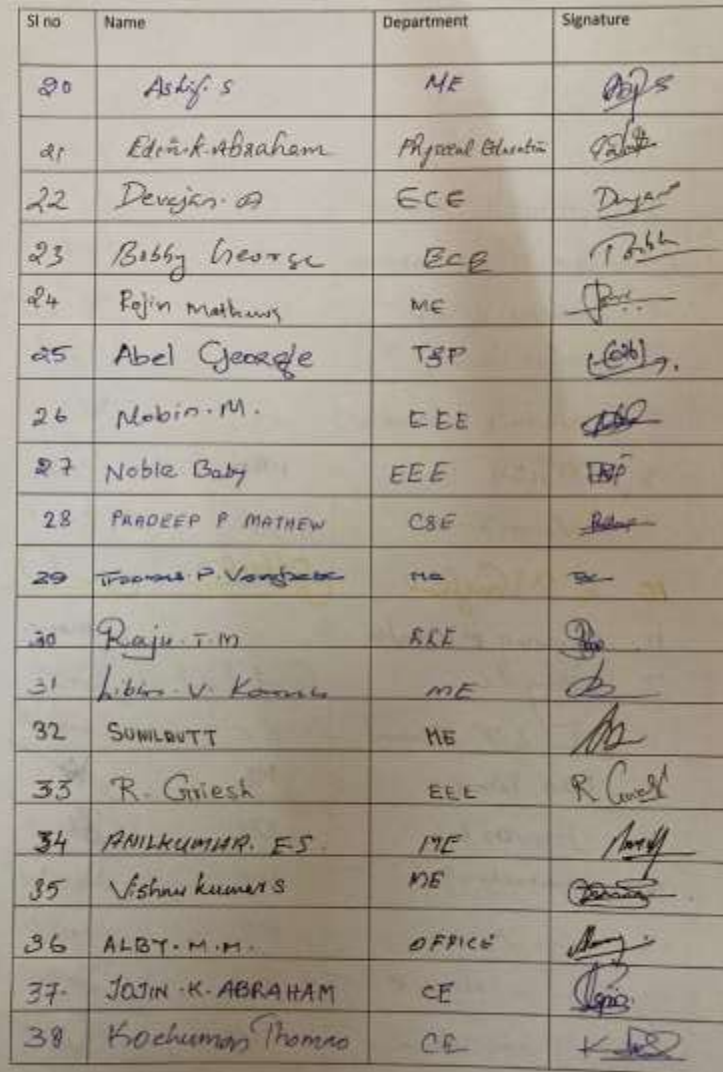 Sl no Name Department Signature
20 Ashif. S ME
21 Edin.K.Abraham Physical Education
22 Devajan. A ECE
23 Bobby George ECE
24 Rejin Mathews ME
25 Abel George T&P
26 Nobin. M. EEE
27 Noble Baby EEE
28 PRADEEP P MATHEW CSE
29 Thomas P. ME
30 Raju. T. M EEE
31 Libin. V. ME
32 SUNILDUTT ME
33 R. Griesh EEE R
34 ANILKUMAR. E S. ME
35 Vishnu kumar S ME
36 ALBY. M. M. OFFICE
37. JOJIN .K. ABRAHAM CE
38 Kochumon Thomas CE